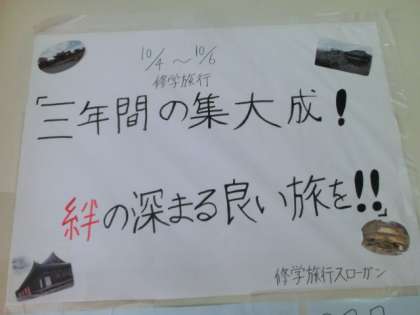 10/4〜10/6
修学旅行
「三年間の集大成!
絆の深まる良い旅を!!」
修学旅行スローガン